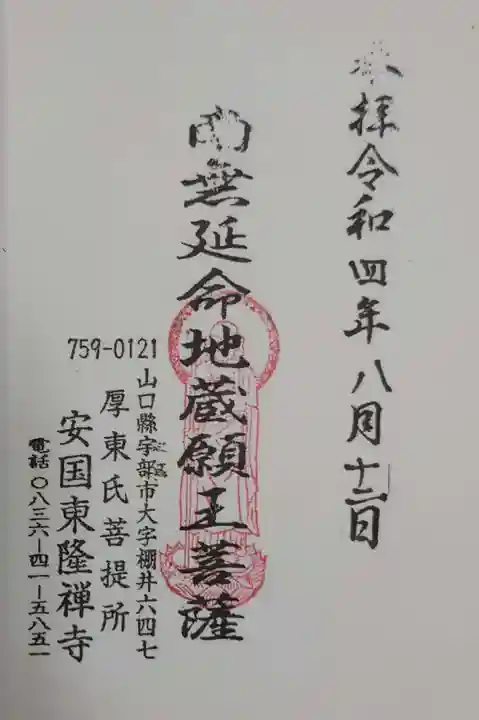 奉拝令和四年八月十二日
南無延命地蔵願王菩薩
759-0121
山口縣宇部市大字棚井六四七
厚東氏菩提所
安国東隆禅寺
電話〇八三六ー四一ー五八五一